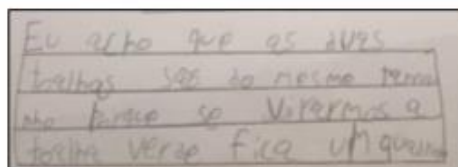 Eu acho que as duas
toalhas são do mesmo tama
nho porque se virarmos a
toalha verde fica um